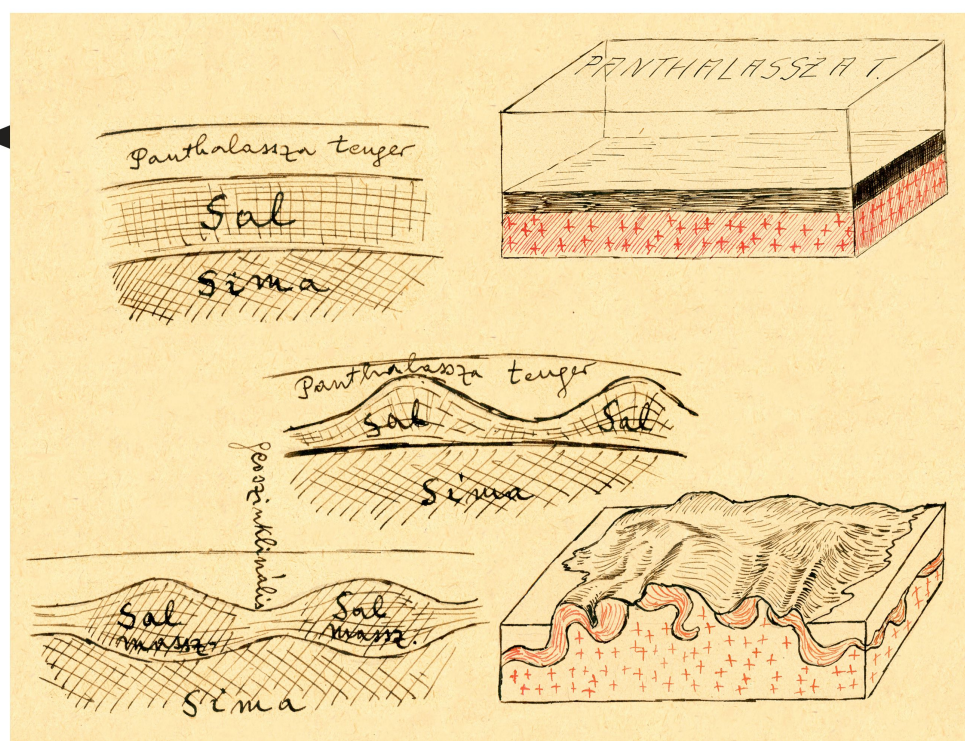 PANTHALASSZA T.
Panthalassza tenger
Sal
Sima
Panthalassza tenger
Sal
Sal
Sima
geoszinklinális
Sal
massz.
Sal
massz.
Sima